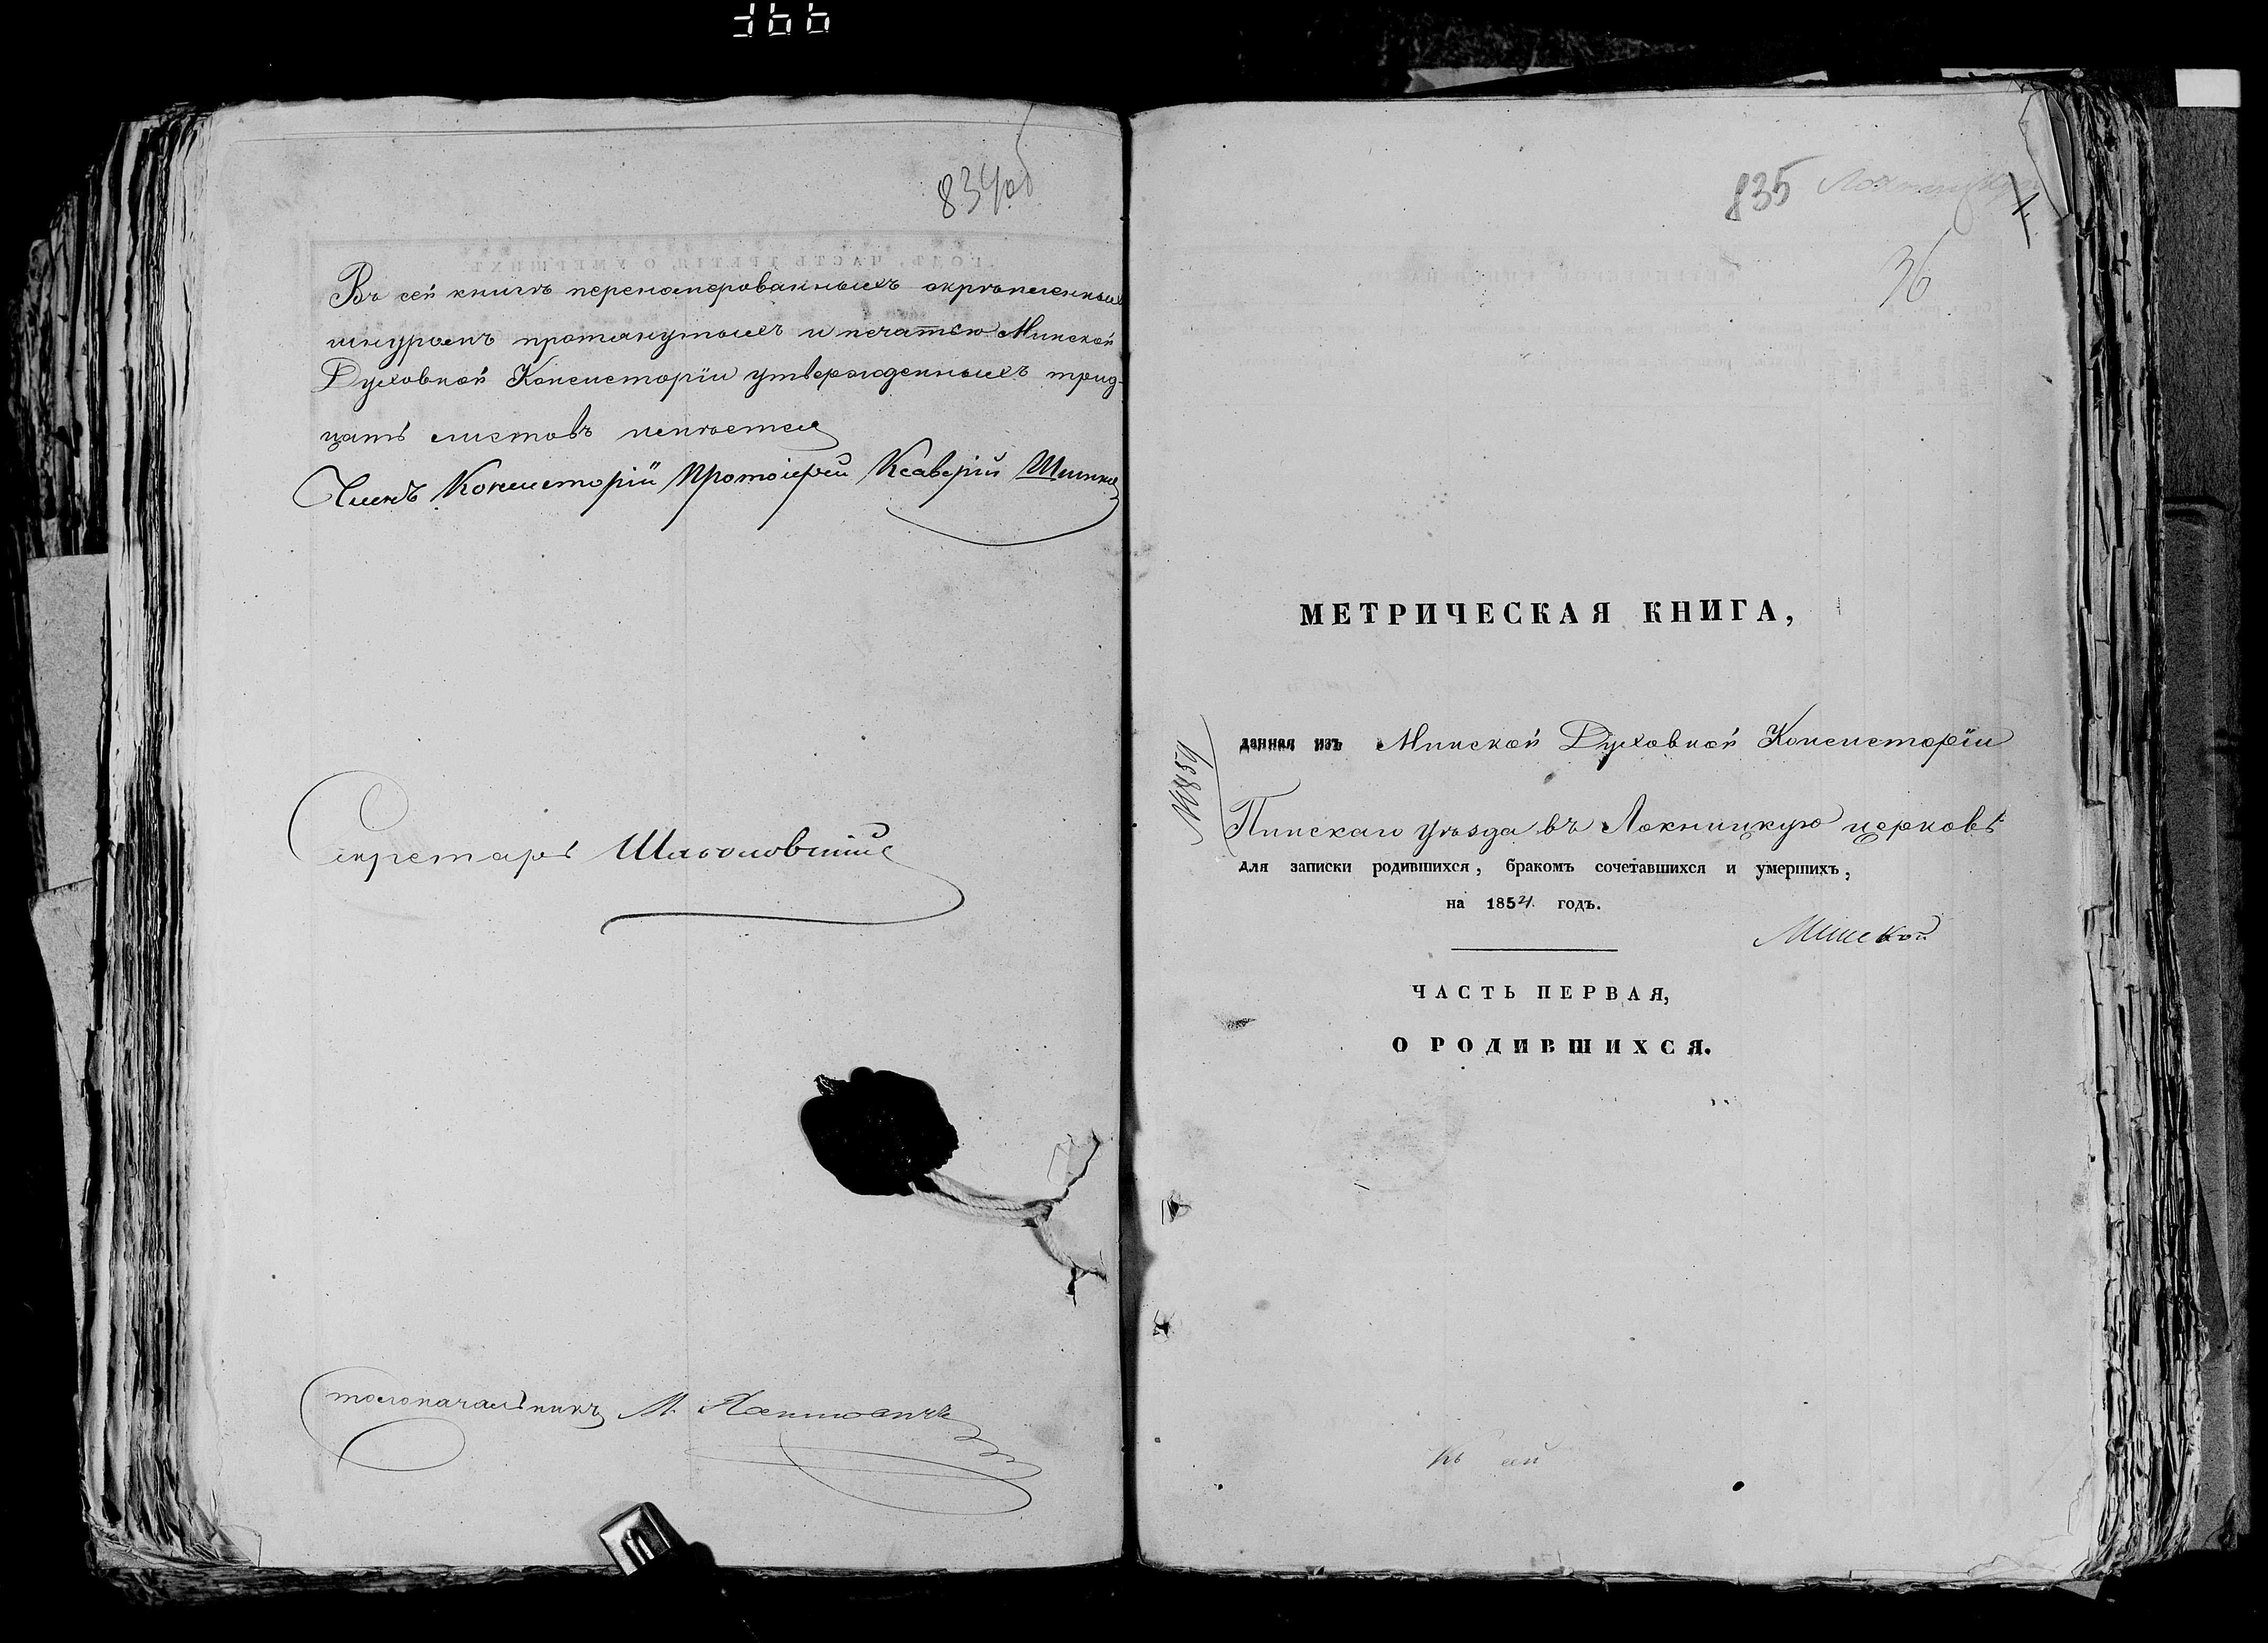 834об
Въ сей книгѣ перенамерованныхъ скрѣпленныхъ
шнуромъ протянутыхъ и печатью Минской
Духовной Консисторіи утвержденныхъ трид-
цать листовъ
Членъ Консисторіи Протоіерей Ксаверій
Секретарь
Столоначальникъ М.
835
36
МЕТРИЧЕСКАЯ КНИГА,
данная изъ Минской Духовной Консисторіи
Пинскаго уѣзда въ Локницкую церковь
для записки родившихся, бракомъ сочетавшихся и умершихъ,
на 1854 годъ.
Минской
ЧАСТЬ ПЕРВАЯ,
О РОДИВШИХСЯ.